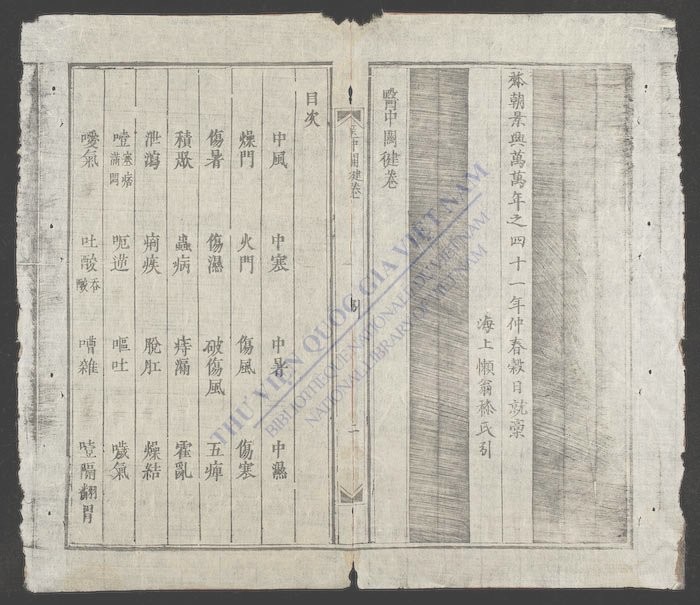 本朝景興萬萬年之四十一年仲春穀日就稾
海上懶翁棶氏引
醫中關鍵卷
醫中關鍵卷
引
二
目次
中風 中寒 中暑 中濕
燥門 火門 傷風 傷寒
傷暑 傷濕 破傷風 五痺
積聚 蟲病 痔漏 霍亂
泄瀉 痢疾 脫肛 燥結
噎塞痞滿悶 呃逆 嘔吐 噦氣
噯氣 吐酸吞酸 嘈雜 噎隔翻胃
THƯ VIỆN QUỐC GIA VIỆT NAM
BIBLIOTHÈQUE NATIONALE DU VIETNAM
NATIONAL LIBRARY OF VIETNAM